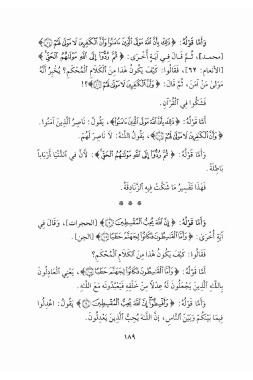 وَأَمَّا قَوْلُهُ: ﴿ذَلِكَ بِأَنَّ اللَّهَ مَوْلَى الَّذِينَ آمَنُوا وَأَنَّ الْكَافِرِينَ لَا مَوْلَى لَهُمْ ١١﴾
[محمد]، ثُمَّ قَالَ فِي آيَةٍ أُخْرَى: ﴿ثُمَّ رُدُّوا إِلَى اللَّهِ مَوْلَاهُمُ الْحَقِّ﴾
[الأنعام: ٦٢]، فَقَالُوا: كَيْفَ يَكُونُ هَذَا مِنَ الْكَلَامِ الْمُحْكَمِ؟ يُخْبِرُ أَنَّهُ
مَوْلَى مَنْ آمَنَ، ثُمَّ قَالَ: ﴿وَأَنَّ الْكَافِرِينَ لَا مَوْلَى لَهُمْ ١١﴾؟!
فَشَكُّوا فِي الْقُرْآنِ.
أَمَّا قَوْلُهُ: ﴿ذَلِكَ بِأَنَّ اللَّهَ مَوْلَى الَّذِينَ آمَنُوا﴾، يَقُولُ: نَاصِرُ الَّذِينَ آمَنُوا.
﴿وَأَنَّ الْكَافِرِينَ لَا مَوْلَى لَهُمْ ١١﴾، يَقُولُ اللَّهُ: لَا نَاصِرَ لَهُمْ.
وَأَمَّا قَوْلُهُ: ﴿ثُمَّ رُدُّوا إِلَى اللَّهِ مَوْلَاهُمُ الْحَقِّ﴾: لِأَنَّ فِي الدُّنْيَا أَرْبَابًا
بَاطِلَةً.
فَهَذَا تَفْسِيرُ مَا شَكَّتْ فِيهِ الزَّنَادِقَةُ.
* * *
وَأَمَّا قَوْلُهُ: ﴿إِنَّ اللَّهَ يُحِبُّ الْمُقْسِطِينَ ٩﴾ [الحجرات]، وَقَالَ فِي
آيَةٍ أُخْرَى: ﴿وَأَمَّا الْقَاسِطُونَ فَكَانُوا لِجَهَنَّمَ حَطَبًا ١٥﴾ [الجن].
فَقَالُوا: كَيْفَ يَكُونُ هَذَا مِنَ الْكَلَامِ الْمُحْكَمِ؟
أَمَّا قَوْلُهُ: ﴿وَأَمَّا الْقَاسِطُونَ فَكَانُوا لِجَهَنَّمَ حَطَبًا ١٥﴾، يَعْنِي الْعَادِلُونَ
بِاللَّهِ الَّذِينَ يَجْعَلُونَ لَهُ عِدْلًا مِنْ خَلْقِهِ فَيَعْبُدُونَهُ مَعَ اللَّهِ.
وَأَمَّا قَوْلُهُ: ﴿وَأَقْسِطُوا إِنَّ اللَّهَ يُحِبُّ الْمُقْسِطِينَ ٩﴾ يَقُولُ: اعْدِلُوا
فِيمَا بَيْنَكُمْ وَبَيْنَ النَّاسِ، إِنَّ اللَّهَ يُحِبُّ الَّذِينَ يَعْدِلُونَ.
١٨٩